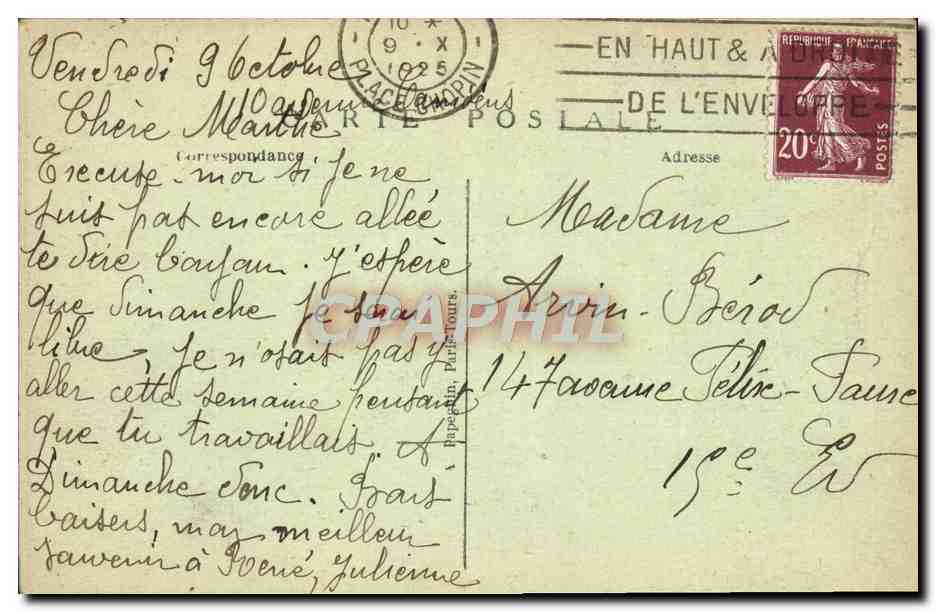 Vendredi 9 Octobre
10 avenue Camoëns
Chère Marthe
Excuse-moi si je ne
suis pas encore allée
te dire bonjour. J'espère
que dimanche je serai
libre, je n'osais pas y
aller cette semaine pensant
que tu travaillais. A
Dimanche donc. Trois
baisers, mon meilleur
souvenir à René, Julienne
CARTE POSTALE
Correspondance
Adresse
Papeghin, Paris-Tours.
Madame
Arvin-Bérod
147 avenue Félix-Faure
15e Ev
10 *
9 . X
1925
PLACE CHOPIN
EN HAUT & A DROITE
DE L'ENVELOPPE
REPUBLIQUE FRANÇAISE
20c
POSTES
CPAPHIL